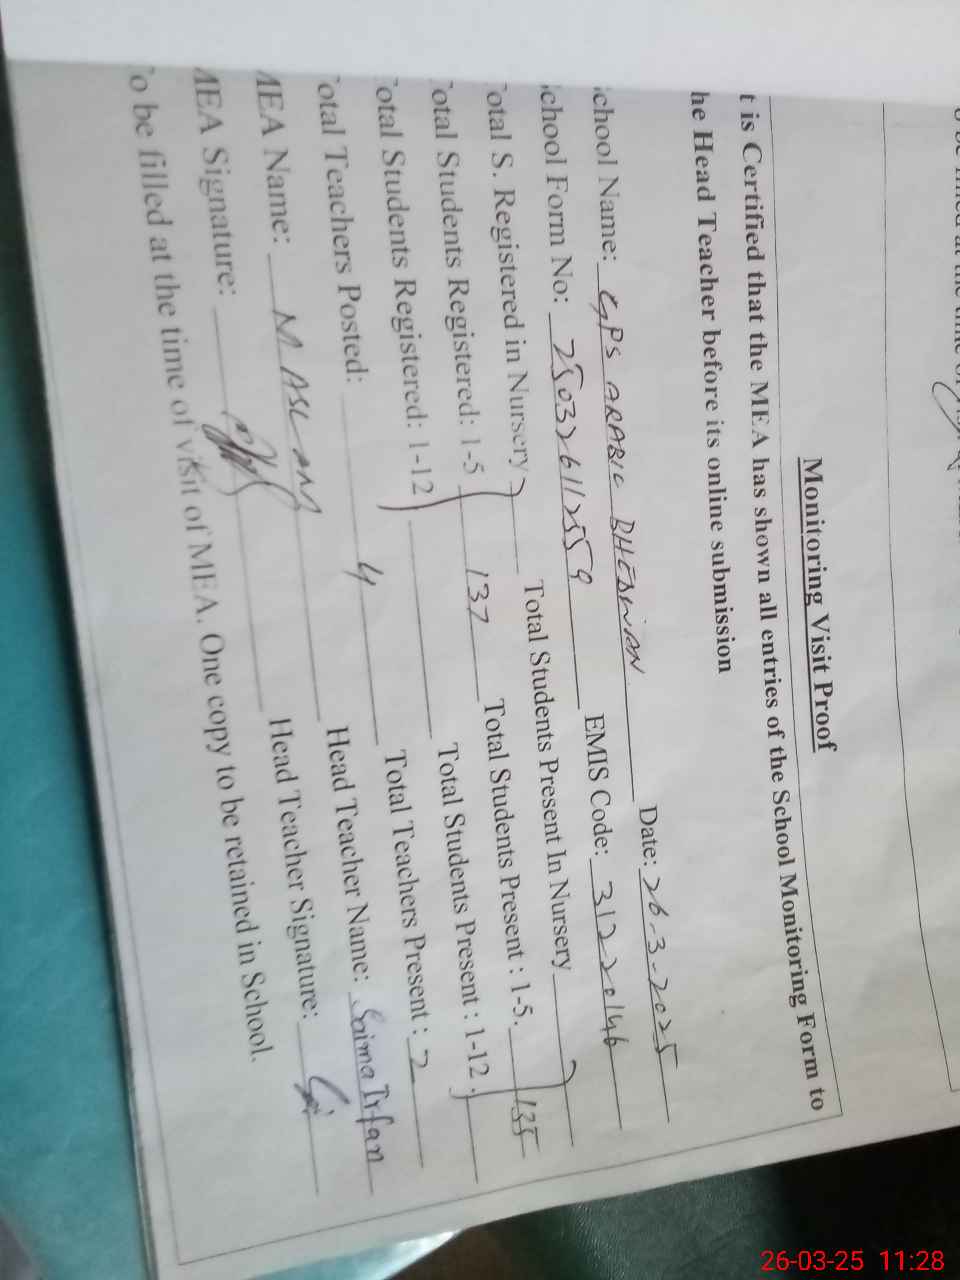 Monitoring Visit Proof
t is Certified that the MEA has shown all entries of the School Monitoring Form to
he Head Teacher before its online submission
chool Name: GPS ARABIC BHEDWAN Date: 26-3-2025
chool Form No: 250326112559 EMIS Code: 31220146
otal S. Registered in Nursery Total Students Present In Nursery
otal Students Registered: 1-5 137 Total Students Present : 1-5. 135
otal Students Registered: 1-12 Total Students Present : 1-12.
otal Teachers Posted: 4 Total Teachers Present : 2
MEA Name: M ASLAM Head Teacher Name: Saima Irfan
MEA Signature: Head Teacher Signature:
o be filled at the time of visit of MEA. One copy to be retained in School.
26-03-25 11:28